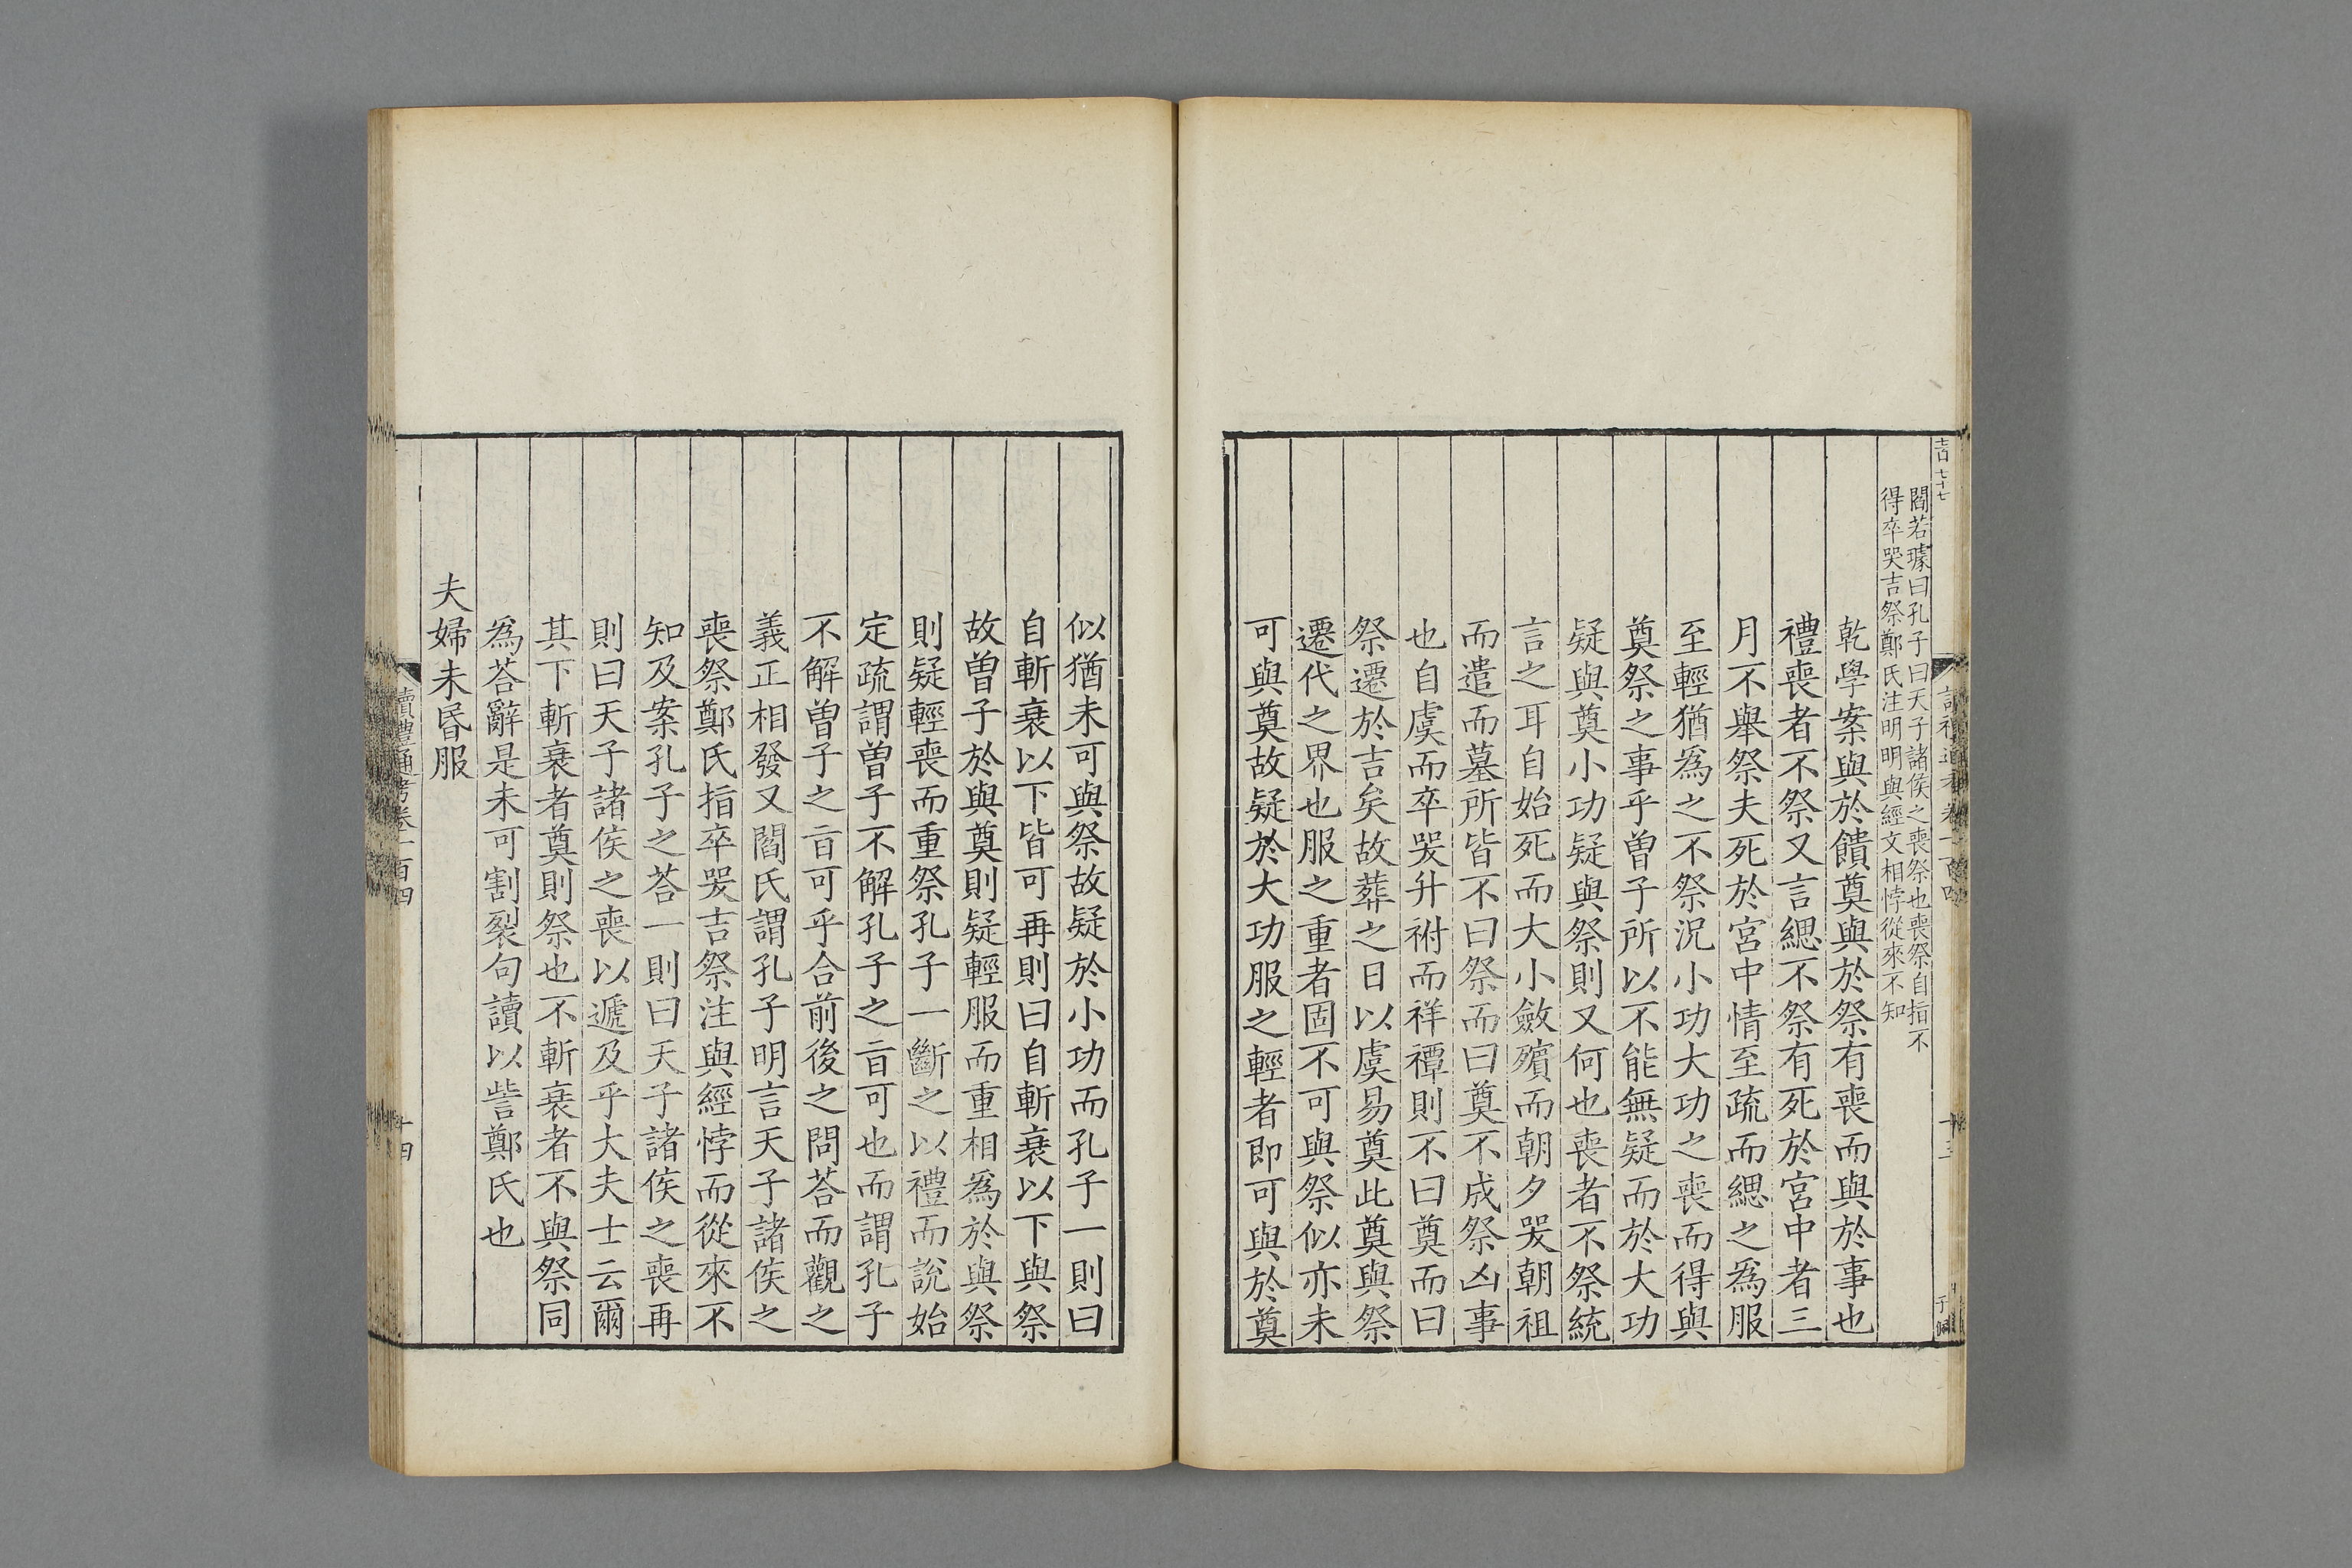 閻若璩曰孔子曰天子諸侯之喪祭也喪祭自指不
得卒哭吉祭鄭氏注明明與經文相悖從來不知
乾學案與於饋奠與於祭有喪而與於事也
禮喪者不祭又言緦不祭有死於宮中者三
月不舉祭夫死於宮中情至疏而緦之爲服
至輕猶爲之不祭況小功大功之喪而得與
奠祭之事乎曽子所以不能無疑而於大功
疑與奠小功疑與祭則又何也喪者不祭統
言之耳自始死而大小斂殯而朝夕哭朝祖
而遣而墓所皆不曰祭而曰奠不成祭凶事
也自虞而卒哭升祔而祥禫則不曰奠而曰
祭遷於吉矣故葬之日以虞易奠此奠與祭
遷代之界也服之重者固不可與祭似亦未
可與奠故疑於大功服之輕者即可與於奠
似猶未可與祭故疑於小功而孔子一則曰
自斬衰以下皆可再則曰自斬衰以下與祭
故曽子於與奠則疑輕服而重相爲於與祭
則疑輕喪而重祭孔子一斷之以禮而說始
定疏謂曽子不解孔子之㫖可也而謂孔子
不解曽子之㫖可乎合前後之問荅而觀之
義正相發又閻氏謂孔子明言天子諸侯之
喪祭鄭氏指卒哭吉祭注與經悖而從來不
知及案孔子之荅一則曰天子諸侯之喪再
則曰天子諸侯之喪以遞及乎大夫士云爾
其下斬衰者奠則祭也不斬衰者不與祭同
爲荅辭是未可割裂句讀以訾鄭氏也
夫婦未昏服
讀禮通考卷一百四
十四